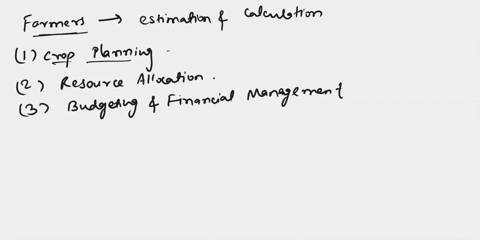 Farmers → estimation & calculation
(1) Crop Planning -
(2) Resource Allocation.
(3) Budgeting & Financial Management